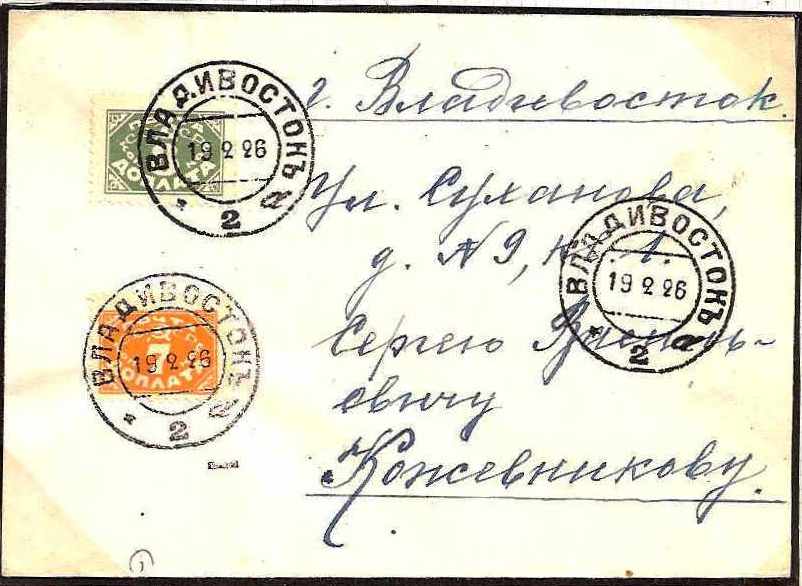 г. Владивосток.
Ул. Суханова,
д. № 9, к. 1.
Сергею
евичу
Кожевникову.
ВЛАДИВОСТОКЪ
19 2 26
* 2 а
ДОПЛАТА
ВЛАДИВОСТОКЪ
19 2 26
* 2 а
ПОЧТ
7
ДОПЛАТА
ВЛАДИВОСТОКЪ
19 2 26
* 2 а
1